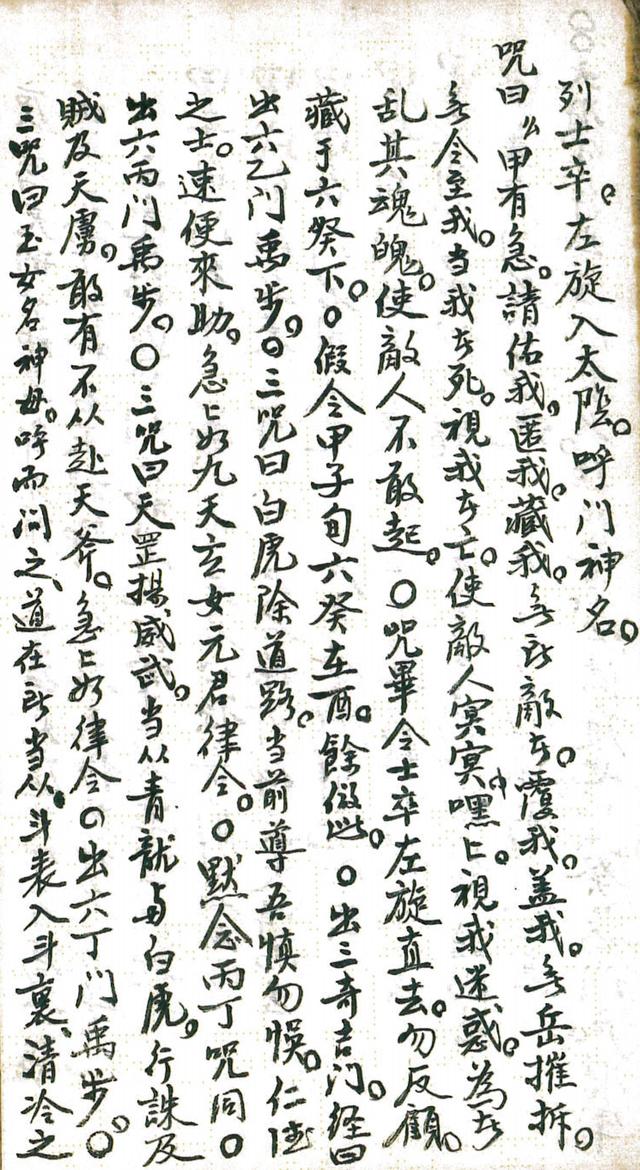 列士卒。左旋入太陰。呼门神名。
咒曰厶甲有急。請佑我。匿我。藏我。無所敵者。覆我。盖我。無岳摧拆。
無令至我。当我者死。視我者亡。使敵人冥冥嘿匕。視我迷惑。為吾
乱其魂魄。使敵人不敢起。〇咒畢令士卒左旋直去。勿反顧。
藏于六癸下。〇假令甲子旬六癸在酉。餘倣此。〇出三奇吉门。经曰
出六乙门禹步。〇三咒曰白虎除道路。当前導吾慎勿悞。仁德
之士。速便來助。急匕如九天玄女元君律令。〇默念丙丁咒同。〇
出六丙门禹步。〇三咒曰天罡揚威武。当从青龍与白虎。行誅及
賊及天虜。敢有不从赴天斧。急匕如律令〇出六丁门禹步。〇
三咒曰玉女名神母。呼而问之、道在所当从。斗表入斗裏、清冷之